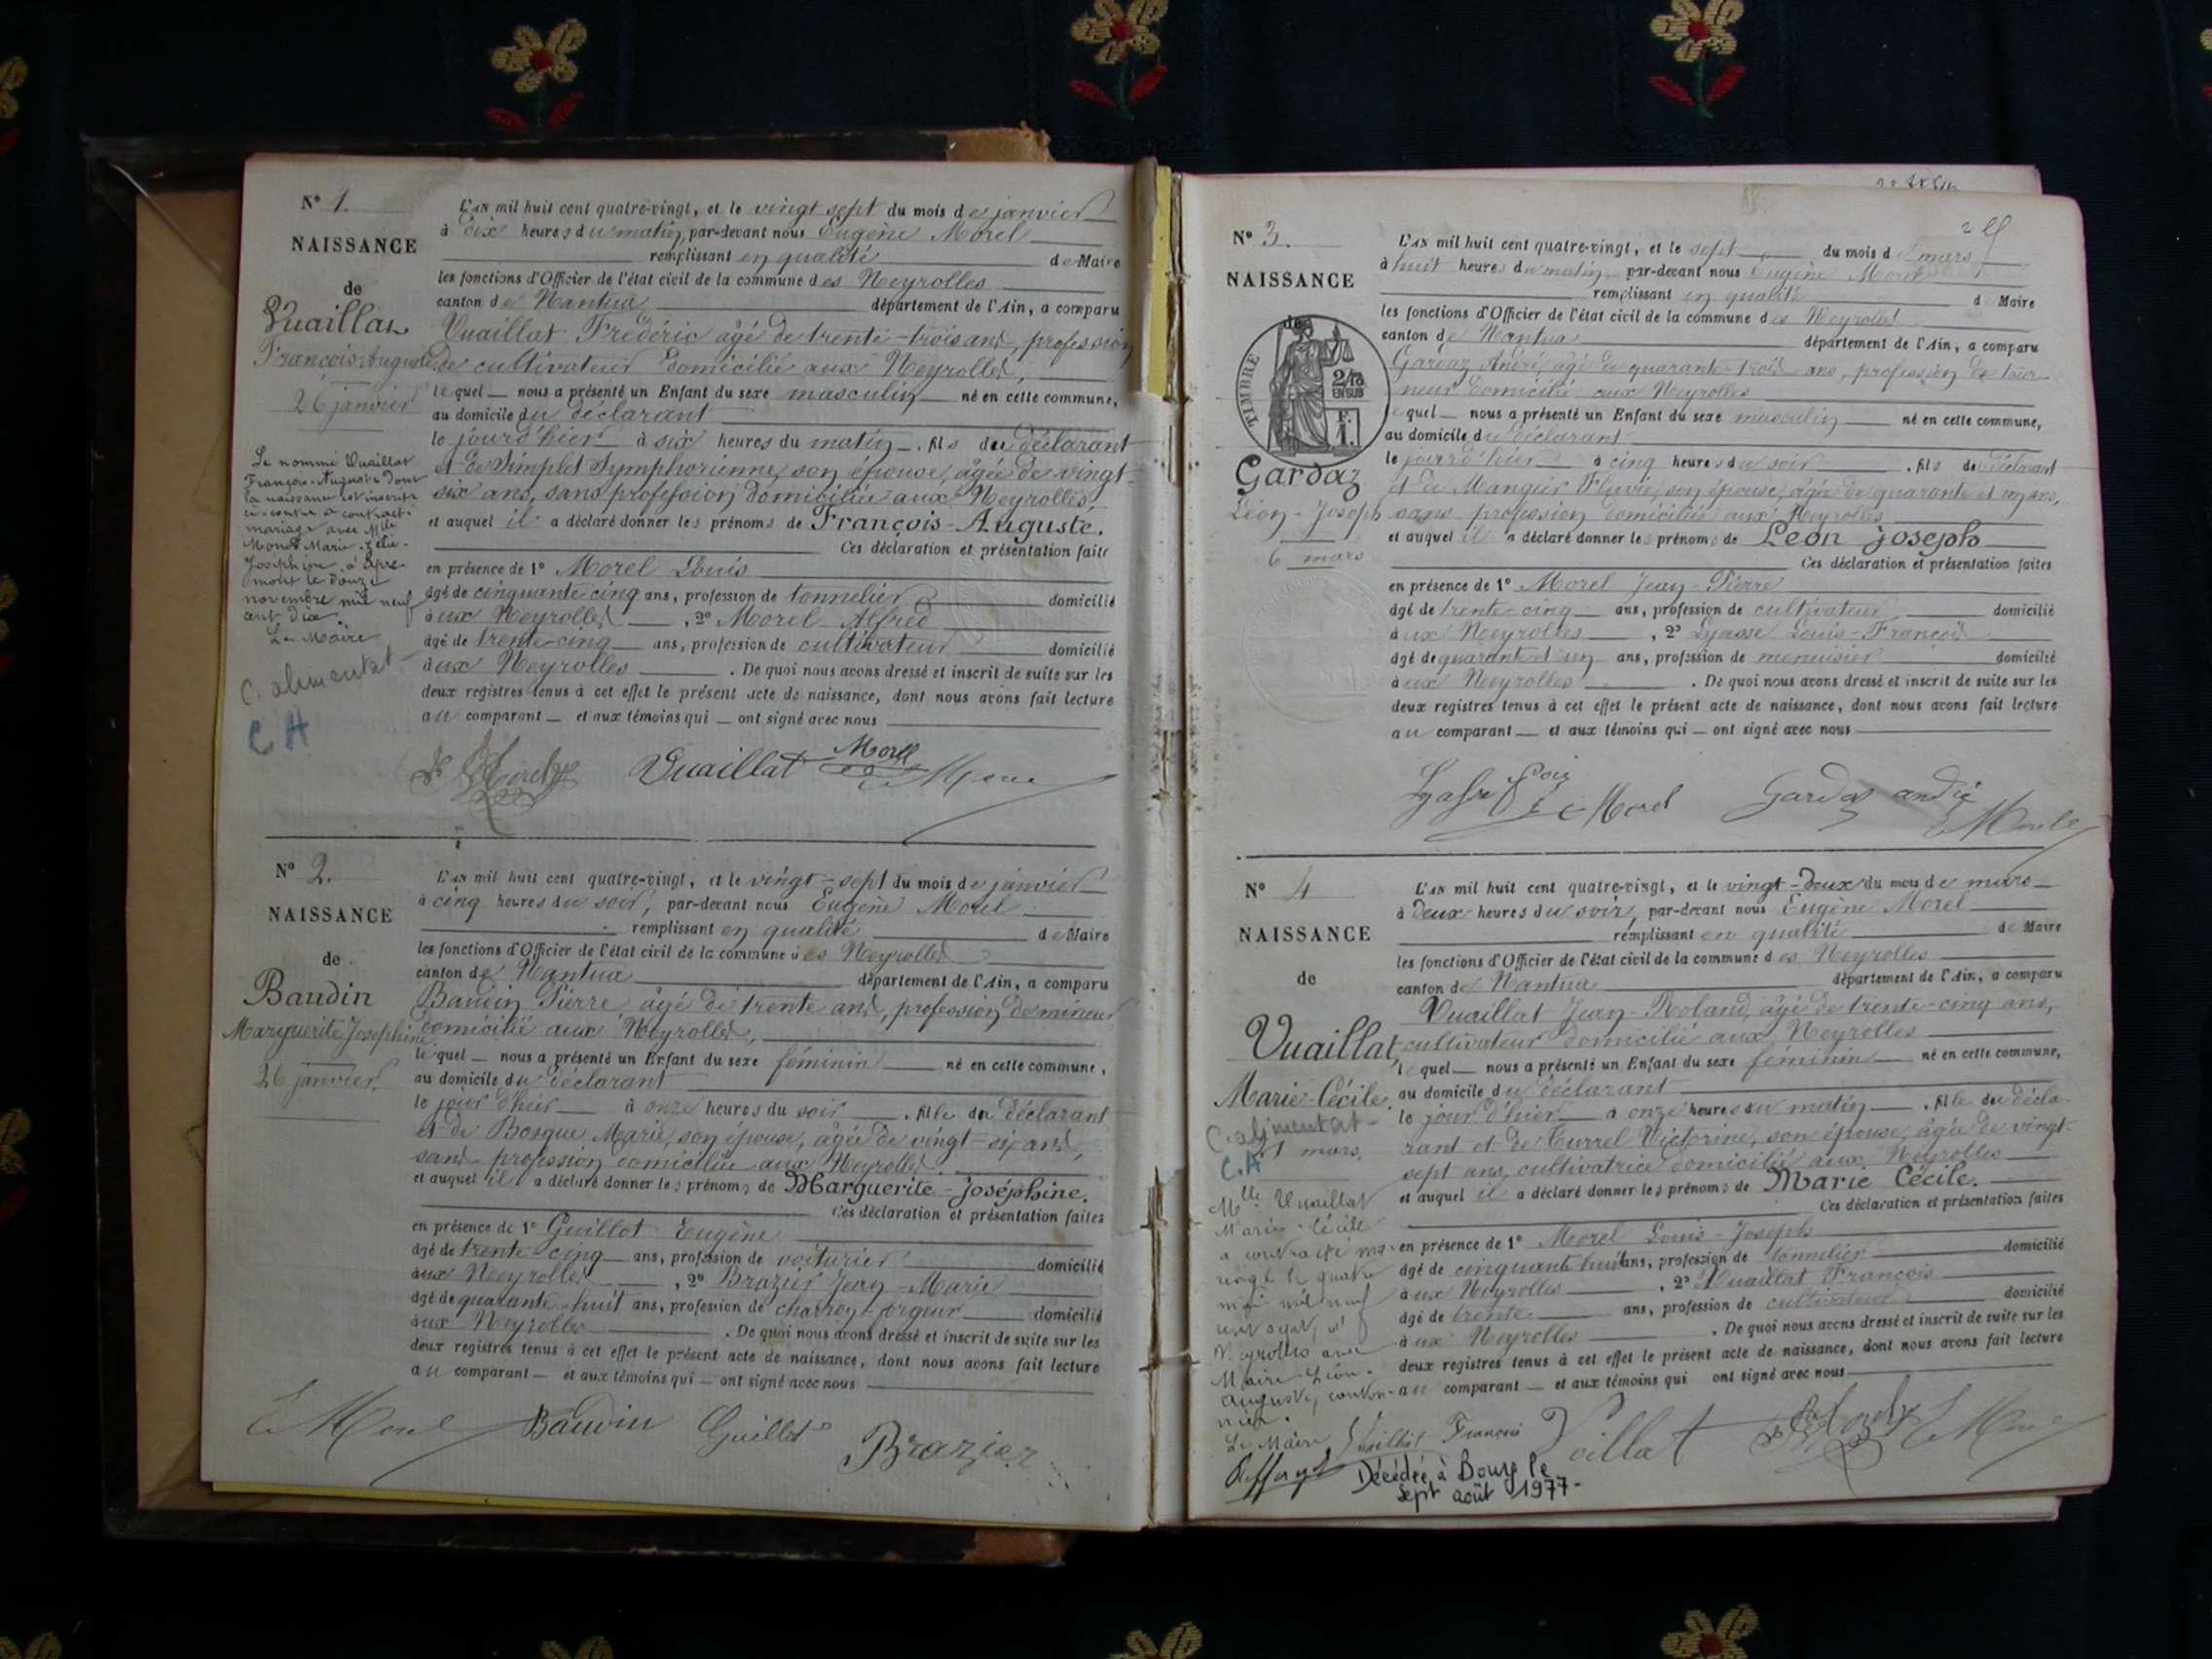 N° 1.
NAISSANCE
de
Vuaillat
François-Auguste
26 janvier
Le nommé Vuaillat
François-Auguste dont
la naissance est inscrite
ci-contre a contracté
mariage avec Mlle
Marie-Zélie-
Joséphine à Apre-
mont le douze
novembre mil neuf
cent dix.
Le Maire
C. alimentat-
C A
L'AN mil huit cent quatre-vingt, et le vingt sept du mois de janvier
à dix heures du matin, par-devant nous Eugène Morel
remplissant en qualité de Maire
les fonctions d'Officier de l'état civil de la commune des Neyrolles
canton de Nantua département de l'Ain, a comparu
Vuaillat Frédéric âgé de trente-trois ans, profession
de cultivateur domicilié aux Neyrolles,
lequel nous a présenté un Enfant du sexe masculin né en cette commune,
au domicile du déclarant
le jour d'hier à six heures du matin, fils du déclarant
et de Simplet Symphorienne, son épouse, âgée de vingt-
six ans, sans profession domiciliée aux Neyrolles,
et auquel il a déclaré donner les prénoms de François-Auguste.
Ces déclaration et présentation faite
en présence de 1° Morel Louis
âgé de cinquante-cinq ans, profession de tonnelier domicilié
aux Neyrolles, 2° Morel Alfred
âgé de trente-cinq ans, profession de cultivateur domicilié
aux Neyrolles. De quoi nous avons dressé et inscrit de suite sur les
deux registres tenus à cet effet le présent acte de naissance, dont nous avons fait lecture
au comparant et aux témoins qui ont signé avec nous
Vuaillat Morel
N° 2.
NAISSANCE
de
Baudin
Marguerite Joséphine
26 janvier.
L'AN mil huit cent quatre-vingt, et le vingt-sept du mois de janvier
à cinq heures du soir, par-devant nous Eugène Morel
remplissant en qualité de Maire
les fonctions d'Officier de l'état civil de la commune des Neyrolles
canton de Nantua département de l'Ain, a comparu
Baudin Pierre, âgé de trente ans, profession de mineur
domicilié aux Neyrolles,
lequel nous a présenté un Enfant du sexe féminin né en cette commune,
au domicile du déclarant
le jour d'hier à onze heures du soir, fille du déclarant
et de Bosque Marie, son épouse, âgée de vingt-six ans,
sans profession domiciliée aux Neyrolles
et auquel il a déclaré donner les prénoms de Marguerite-Joséphine.
Ces déclaration et présentation faites
en présence de 1° Guillot Eugène
âgé de trente-cinq ans, profession de voiturier domicilié
aux Neyrolles, 2° Brazier Jean-Marie
âgé de quarante-huit ans, profession de domicilié
aux Neyrolles. De quoi nous avons dressé et inscrit de suite sur les
deux registres tenus à cet effet le présent acte de naissance, dont nous avons fait lecture
au comparant et aux témoins qui ont signé avec nous
E Morel Baudin Guillot Brazier
N° 3.
NAISSANCE
de
TIMBRE
2/10
EN SUS
F.
1.
Gardaz
Léon-Joseph
6 mars
L'AN mil huit cent quatre-vingt, et le sept du mois de mars
à huit heures du matin, par-devant nous Eugène Morel
remplissant en qualité de Maire
les fonctions d'Officier de l'état civil de la commune des Neyrolles
canton de Nantua département de l'Ain, a comparu
Gardaz André, âgé de quarante-trois ans, profession de tour-
neur domicilié aux Neyrolles
lequel nous a présenté un Enfant du sexe masculin né en cette commune,
au domicile du déclarant
le jour d'hier à cinq heures du soir, fils du déclarant
et de Flavie, son épouse, âgée de quarante et un ans,
sans profession domiciliée aux Neyrolles
et auquel il a déclaré donner les prénoms de Léon Joseph
Ces déclaration et présentation faites
en présence de 1° Morel Jean-Pierre
âgé de trente-cinq ans, profession de cultivateur domicilié
aux Neyrolles, 2° Lyasse Louis-François
âgé de quarante et un ans, profession de menuisier domicilié
aux Neyrolles. De quoi nous avons dressé et inscrit de suite sur les
deux registres tenus à cet effet le présent acte de naissance, dont nous avons fait lecture
au comparant et aux témoins qui ont signé avec nous
Morel Gardaz andré
N° 4
NAISSANCE
de
Vuaillat,
Marie-Cécile
C. alimentat-
21 mars.
C.A
Mlle Vuaillat
Marie-Cécile
a contracté ma-
riage le quatre
mai mil neuf
cent sept, à
Neyrolles avec
Maire Léon-
Auguste, canton-
nier.
Le Maire
L'AN mil huit cent quatre-vingt, et le vingt-deux du mois de mars
à deux heures du soir, par-devant nous Eugène Morel
remplissant en qualité de Maire
les fonctions d'Officier de l'état civil de la commune des Neyrolles
canton de Nantua département de l'Ain, a comparu
Vuaillat Jean-Roland, âgé de trente-cinq ans,
cultivateur domicilié aux Neyrolles
lequel nous a présenté un Enfant du sexe féminin né en cette commune,
au domicile du déclarant
le jour d'hier à onze heures du matin, fille du décla-
rant et de Turrel Victorine, son épouse, âgée de vingt-
sept ans, cultivatrice domiciliée aux Neyrolles
et auquel il a déclaré donner les prénoms de Marie Cécile.
Ces déclaration et présentation faites
en présence de 1° Morel Louis-Joseph
âgé de cinquante huit ans, profession de tonnelier domicilié
aux Neyrolles, 2° Vuaillat François
âgé de trente ans, profession de cultivateur domicilié
aux Neyrolles. De quoi nous avons dressé et inscrit de suite sur les
deux registres tenus à cet effet le présent acte de naissance, dont nous avons fait lecture
au comparant et aux témoins qui ont signé avec nous
François
Décédée à Bourg le
sept août 1977-